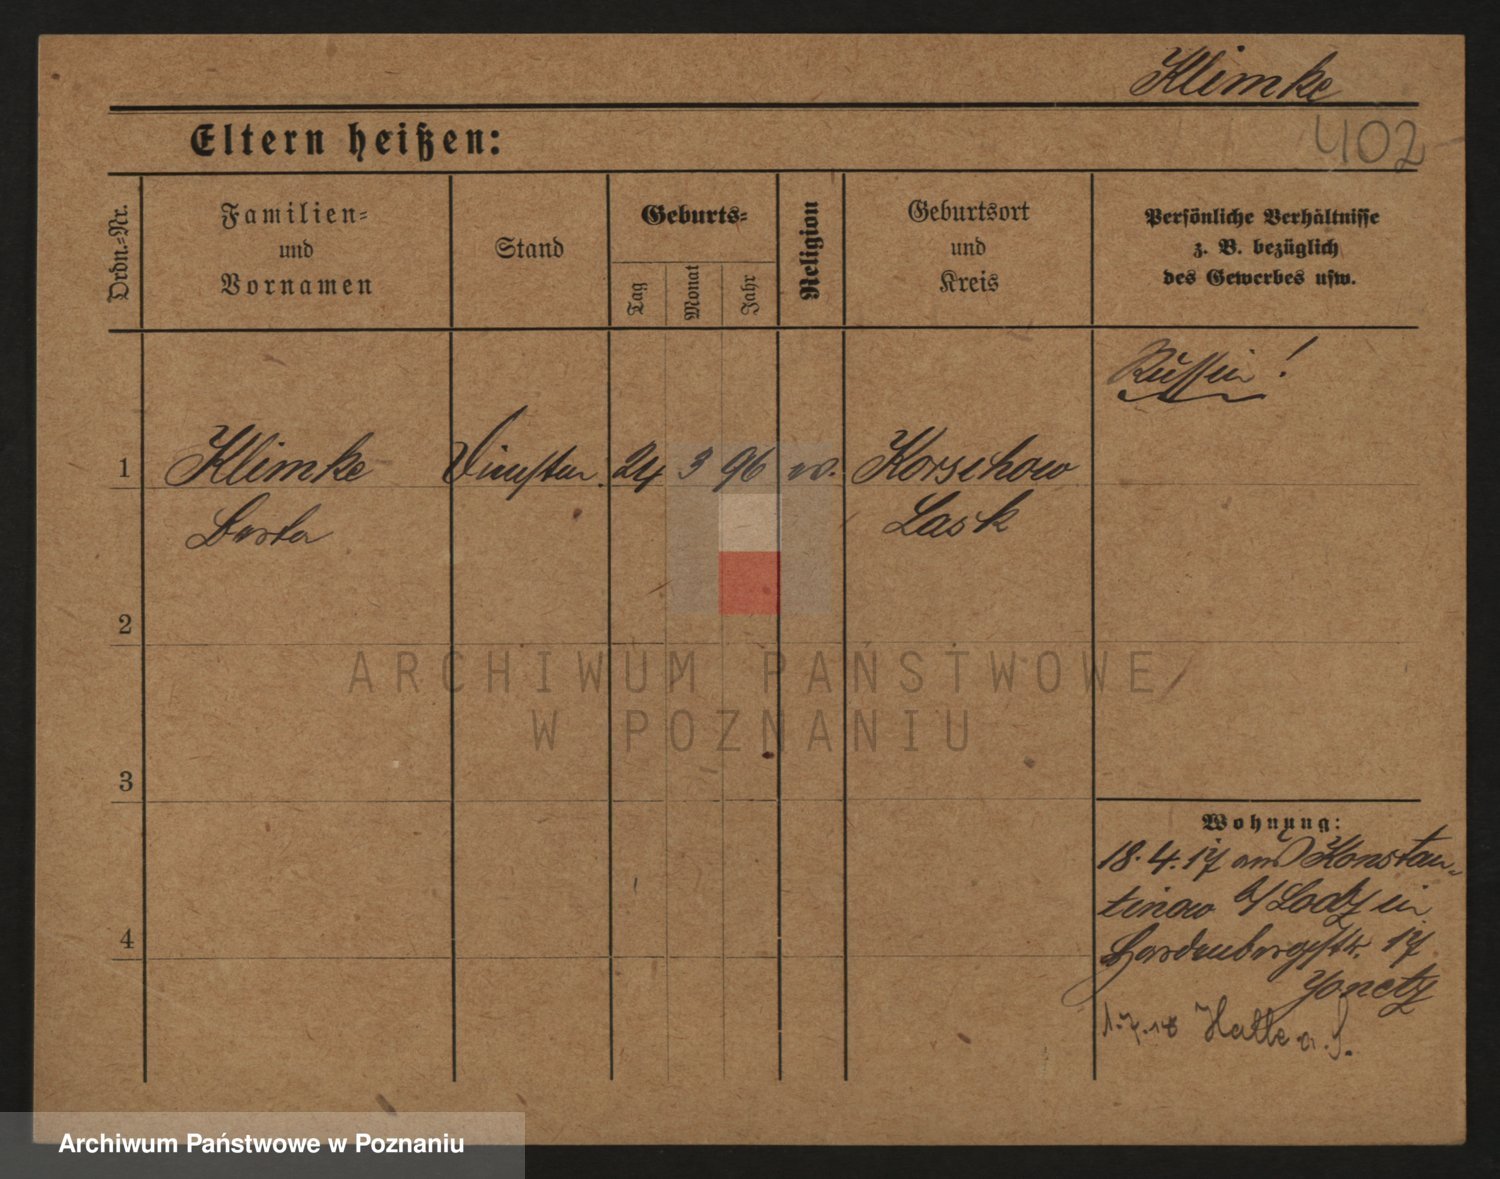 Klimke
Eltern heißen:
402
Ordn.=Nr.
Familien=
und
Vornamen
Stand
Geburts=
Tag
Monat
Jahr
Religion
Geburtsort
und
Kreis
Persönliche Verhältnisse
z. B. bezüglich
des Gewerbes usw.
Russin!
1 Klimke 24 3 96 ev. Korschow
Lask
2
3
4
Wohnung:
18.4.17 aus Konstan-
tinow b/ Lodz in
Hardenbergstr. 17
1.7.18 Halle a. S.
ARCHIWUM PAŃSTWOWE
W POZNANIU
Archiwum Państwowe w Poznaniu